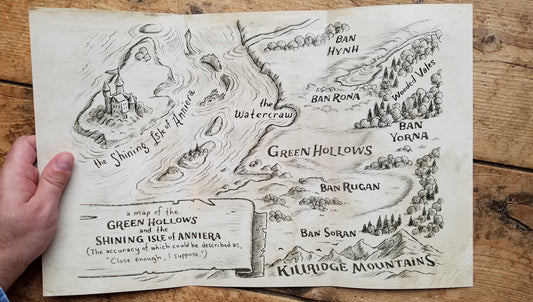 BAN
HYNH
Wooded Vales
BAN RONA
the
Watercraw
BAN
YORNA
the Shining Isle of Anniera
GREEN HOLLOWS
BAN RUGAN
BAN SORAN
KILLRIDGE MOUNTAINS
a map of the
GREEN HOLLOWS
and the
SHINING ISLE OF ANNIERA
(The accuracy of which could be described as,
"Close enough, I suppose.")